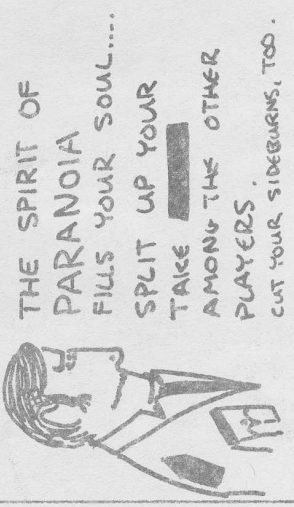 THE SPIRIT OF
PARANOIA
FILLS YOUR SOUL....
SPLIT UP YOUR
TAKE
AMONG THE OTHER
PLAYERS.
CUT YOUR SIDEBURNS, TOO.